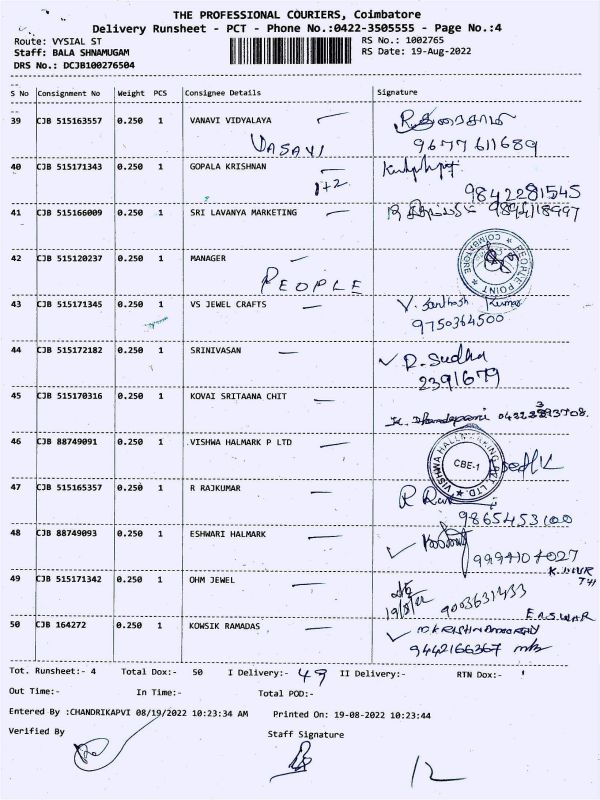 THE PROFESSIONAL COURIERS, Coimbatore
Delivery Runsheet - PCT - Phone No.:0422-3505555 - Page No.:4
Route: VYSIAL ST RS No.: 1002765
Staff: BALA SHNAMUGAM RS Date: 19-Aug-2022
DRS No.: DCJB100276504
S No Consignment No Weight PCS Consignee Details Signature
39 CJB 515163557 0.250 1 VANAVI VIDYALAYA
VASAVI 9677611689
40 CJB 515171343 0.250 1 GOPALA KRISHNAN
1+2 9842281545
41 CJB 515166009 0.250 1 SRI LAVANYA MARKETING
42 CJB 515120237 0.250 1 MANAGER
PEOPLE
PEOPLE POINT ★ COIMBATORE ★
43 CJB 515171345 0.250 1 VS JEWEL CRAFTS V. Santhosh Kumar
9750364500
44 CJB 515172182 0.250 1 SRINIVASAN R. Sudha
2391679
45 CJB 515170316 0.250 1 KOVAI SRITAANA CHIT
46 CJB 88749091 0.250 1 VISHWA HALMARK P LTD
VISHWA HALLMARKING PVT. LTD. ★ CBE-1
47 CJB 515165357 0.250 1 R RAJKUMAR
9865453100
48 CJB 88749093 0.250 1 ESHWARI HALMARK
9994104027
49 CJB 515171342 0.250 1 OHM JEWEL
19/8/22 9003631433
EASWAR
50 CJB 164272 0.250 1 KOWSIK RAMADAS
9442166367
Tot. Runsheet:- 4 Total Dox:- 50 I Delivery:- 49 II Delivery:- RTN Dox:- 1
Out Time:- In Time:- Total POD:-
Entered By :CHANDRIKAPVI 08/19/2022 10:23:34 AM Printed On: 19-08-2022 10:23:44
Verified By Staff Signature
12